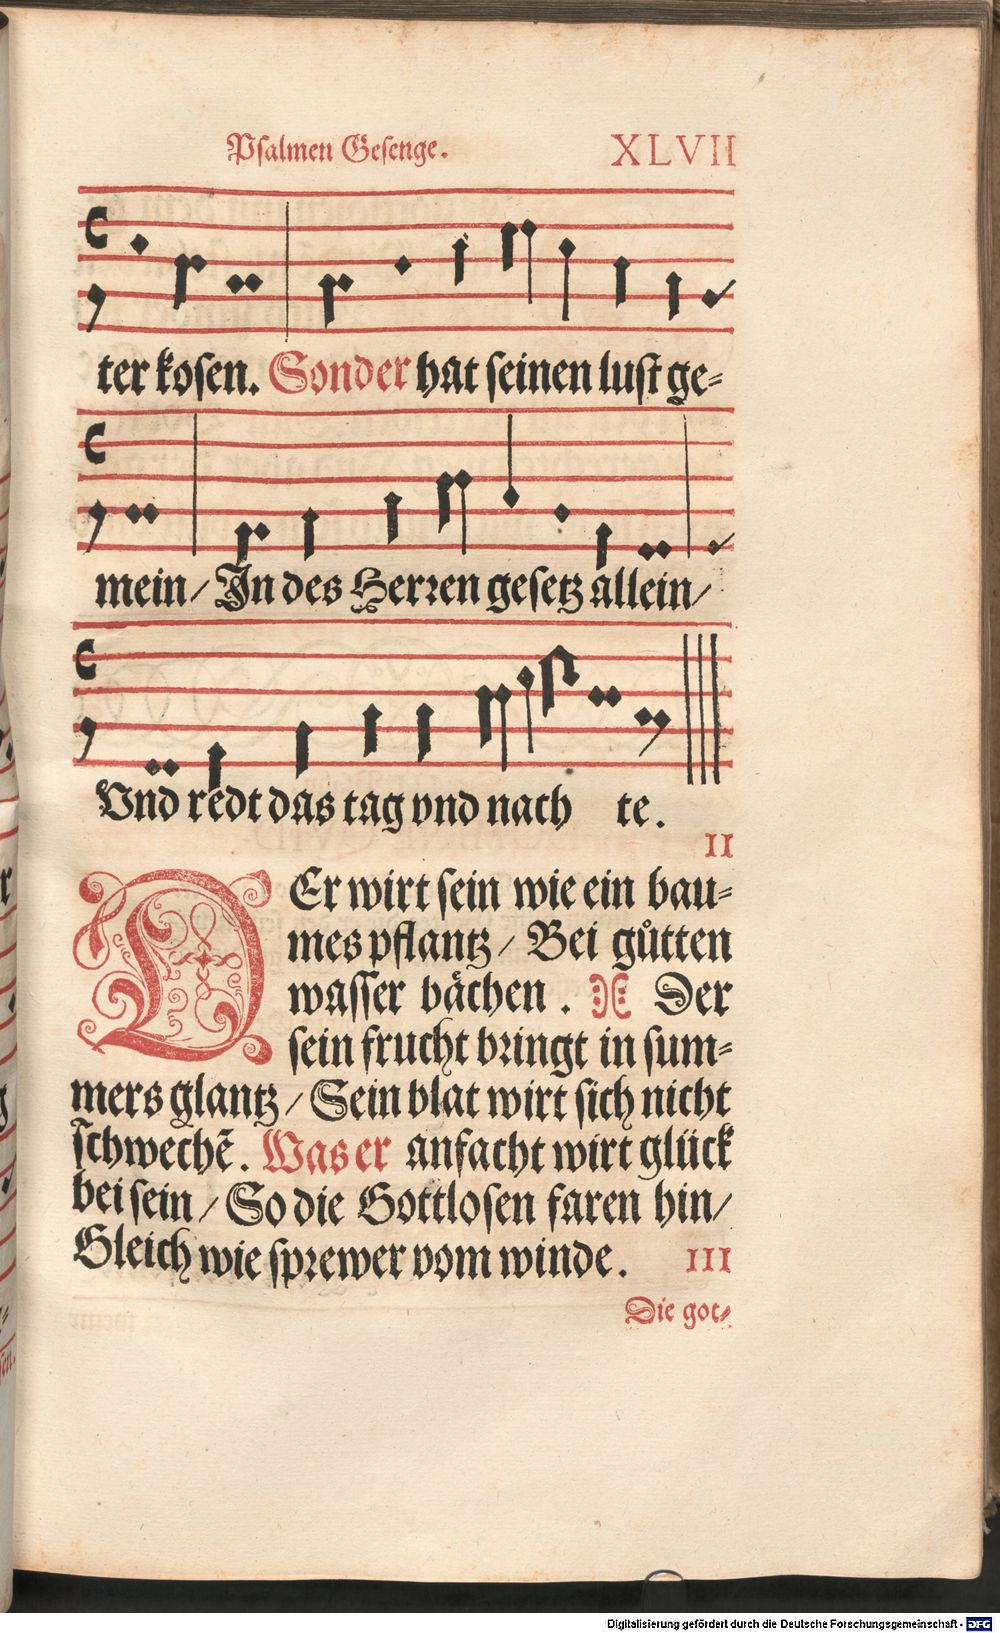 Psalmen Gesenge. XLVII
ter kosen. Sonder hat seinen lust ge⸗
mein/ In des Herren gesetz allein/
Vnd redt das tag vnd nach te.
II
DEr wirt sein wie ein bau⸗
mes pflantz/ Bei gůtten
wasser bächen. Der
sein frucht bringt in sum⸗
mers glantz/ Sein blat wirt sich nicht
schwechẽ. Was er anfacht wirt glück
bei sein/ So die Gottlosen faren hin/
Gleich wie sprewer vom winde. III
Die got⸗
Digitalisierung gefördert durch die Deutsche Forschungsgemeinschaft - DFG